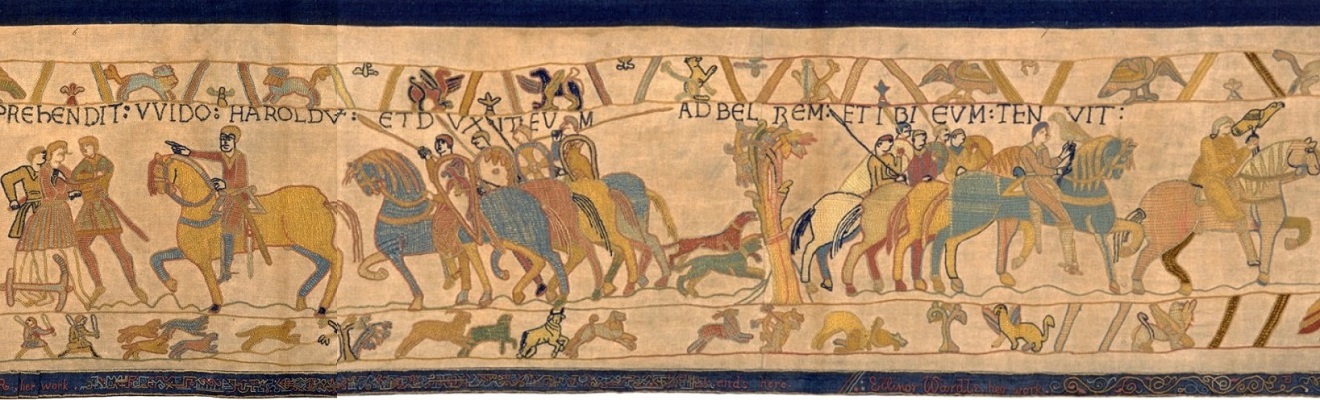 PREHENDIT: VVIDO: HAROLDV: ET DVXIT EVM AD BEL REM: ET IBI EVM: TEN VIT:
her work ends here her work